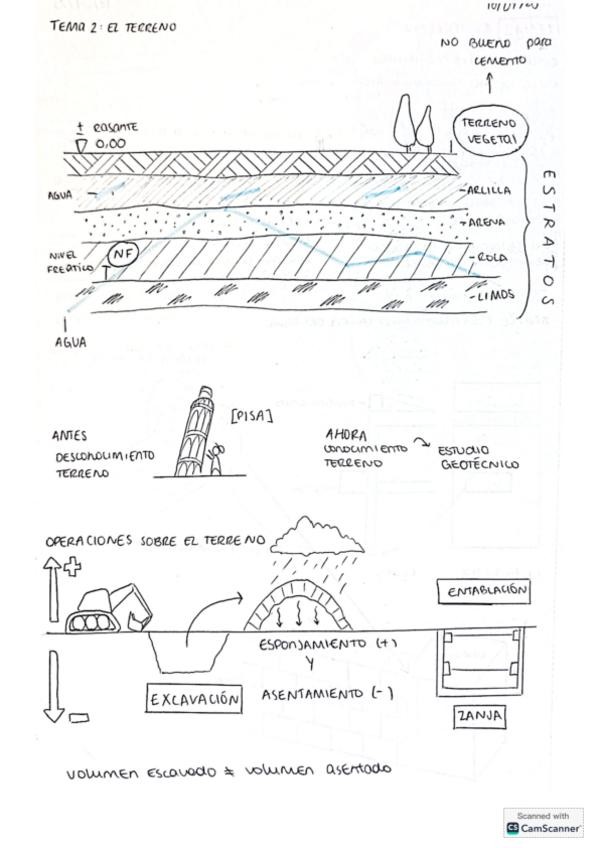 TEMA 2: EL TERRENO
NO BUENO para
CEMENTO
TERRENO
VEGETAL
± RASANTE
0,00
AGUA
ARLILLA
ARENA
NIVEL
FREÁTICO
NF
ROLA
LIMOS
ESTRATOS
AGUA
[PISA]
ANTES
DESCONOCIMIENTO
TERRENO
AHORA
CONOCIMIENTO
TERRENO
ESTUDIO
GEOTÉCNICO
OPERACIONES SOBRE EL TERRENO
+
ENTABLACIÓN
ESPONJAMIENTO (+)
Y
ASENTAMIENTO (-)
EXCAVACIÓN
ZANJA
VOLUMEN ESCAVADO ≠ VOLUMEN ASENTADO
Scanned with
CS CamScanner